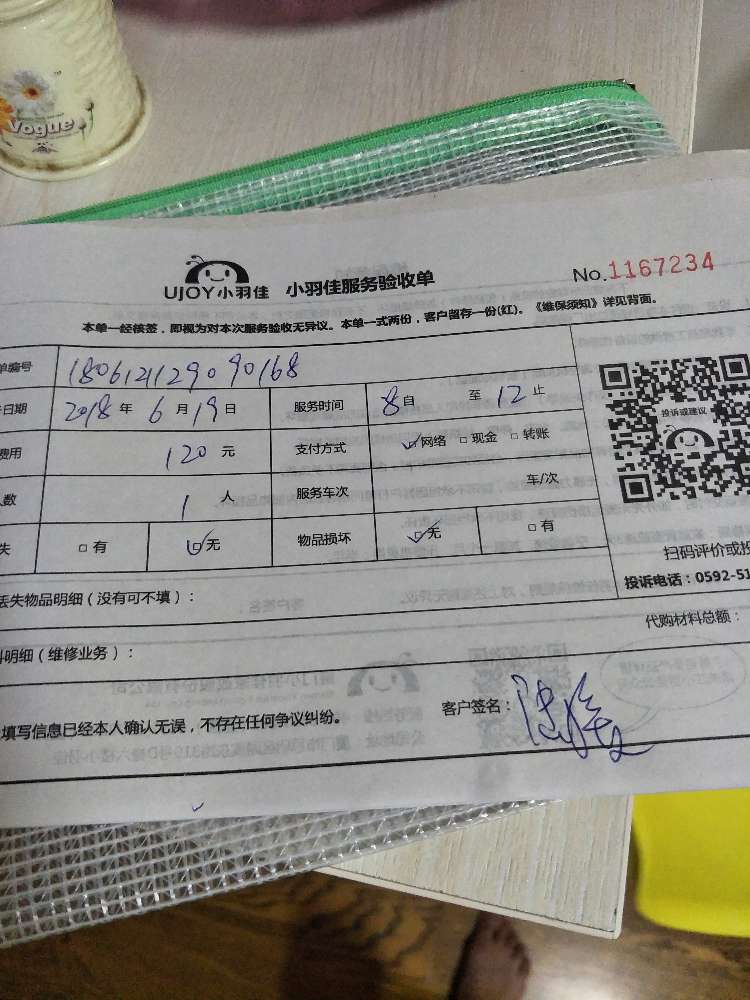 Vogue
UJOY小羽佳 小羽佳服务验收单 No.1167234
本单一经核签，即视为对本次服务验收无异议。本单一式两份，客户留存一份(红)。《维保须知》详见背面。
单编号 1806121129090168
日期 2018 年 6 月 19 日 服务时间 8 自 至 12 止
费用 120 元 支付方式 ☑网络 □现金 □转账
人数 1 人 服务车次 车/次
失 □有 ☑无 物品损坏 ☑无 □有
投诉或建议
扫码评价或投
投诉电话：0592-51
丢失物品明细（没有可不填）：
代购材料总额：
料明细（维修业务）：
填写信息已经本人确认无误，不存在任何争议纠纷。 客户签名：